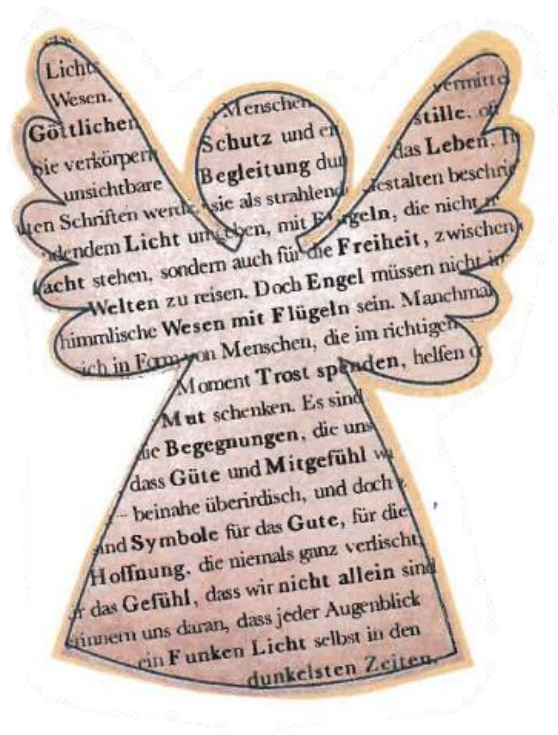 Licht
Wesen.
Göttlichen Menschen vermitte
sie verkörpern Schutz und er stille, of
unsichtbare Begleitung dur das Leben. I
ten Schriften werde sie als strahlend estalten beschrie
dendem Licht umgeben, mit Flügeln, die nicht n
acht stehen, sondern auch für die Freiheit, zwischen
Welten zu reisen. Doch Engel müssen nicht im
himmlische Wesen mit Flügeln sein. Manchmal
ich in Form von Menschen, die im richtigen
Moment Trost spenden, helfen o
Mut schenken. Es sind
die Begegnungen, die uns
dass Güte und Mitgefühl w
beinahe überirdisch, und doch
sind Symbole für das Gute, für die
Hoffnung, die niemals ganz verlischt
r das Gefühl, dass wir nicht allein sind
erinnern uns daran, dass jeder Augenblick
ein Funken Licht selbst in den
dunkelsten Zeiten.